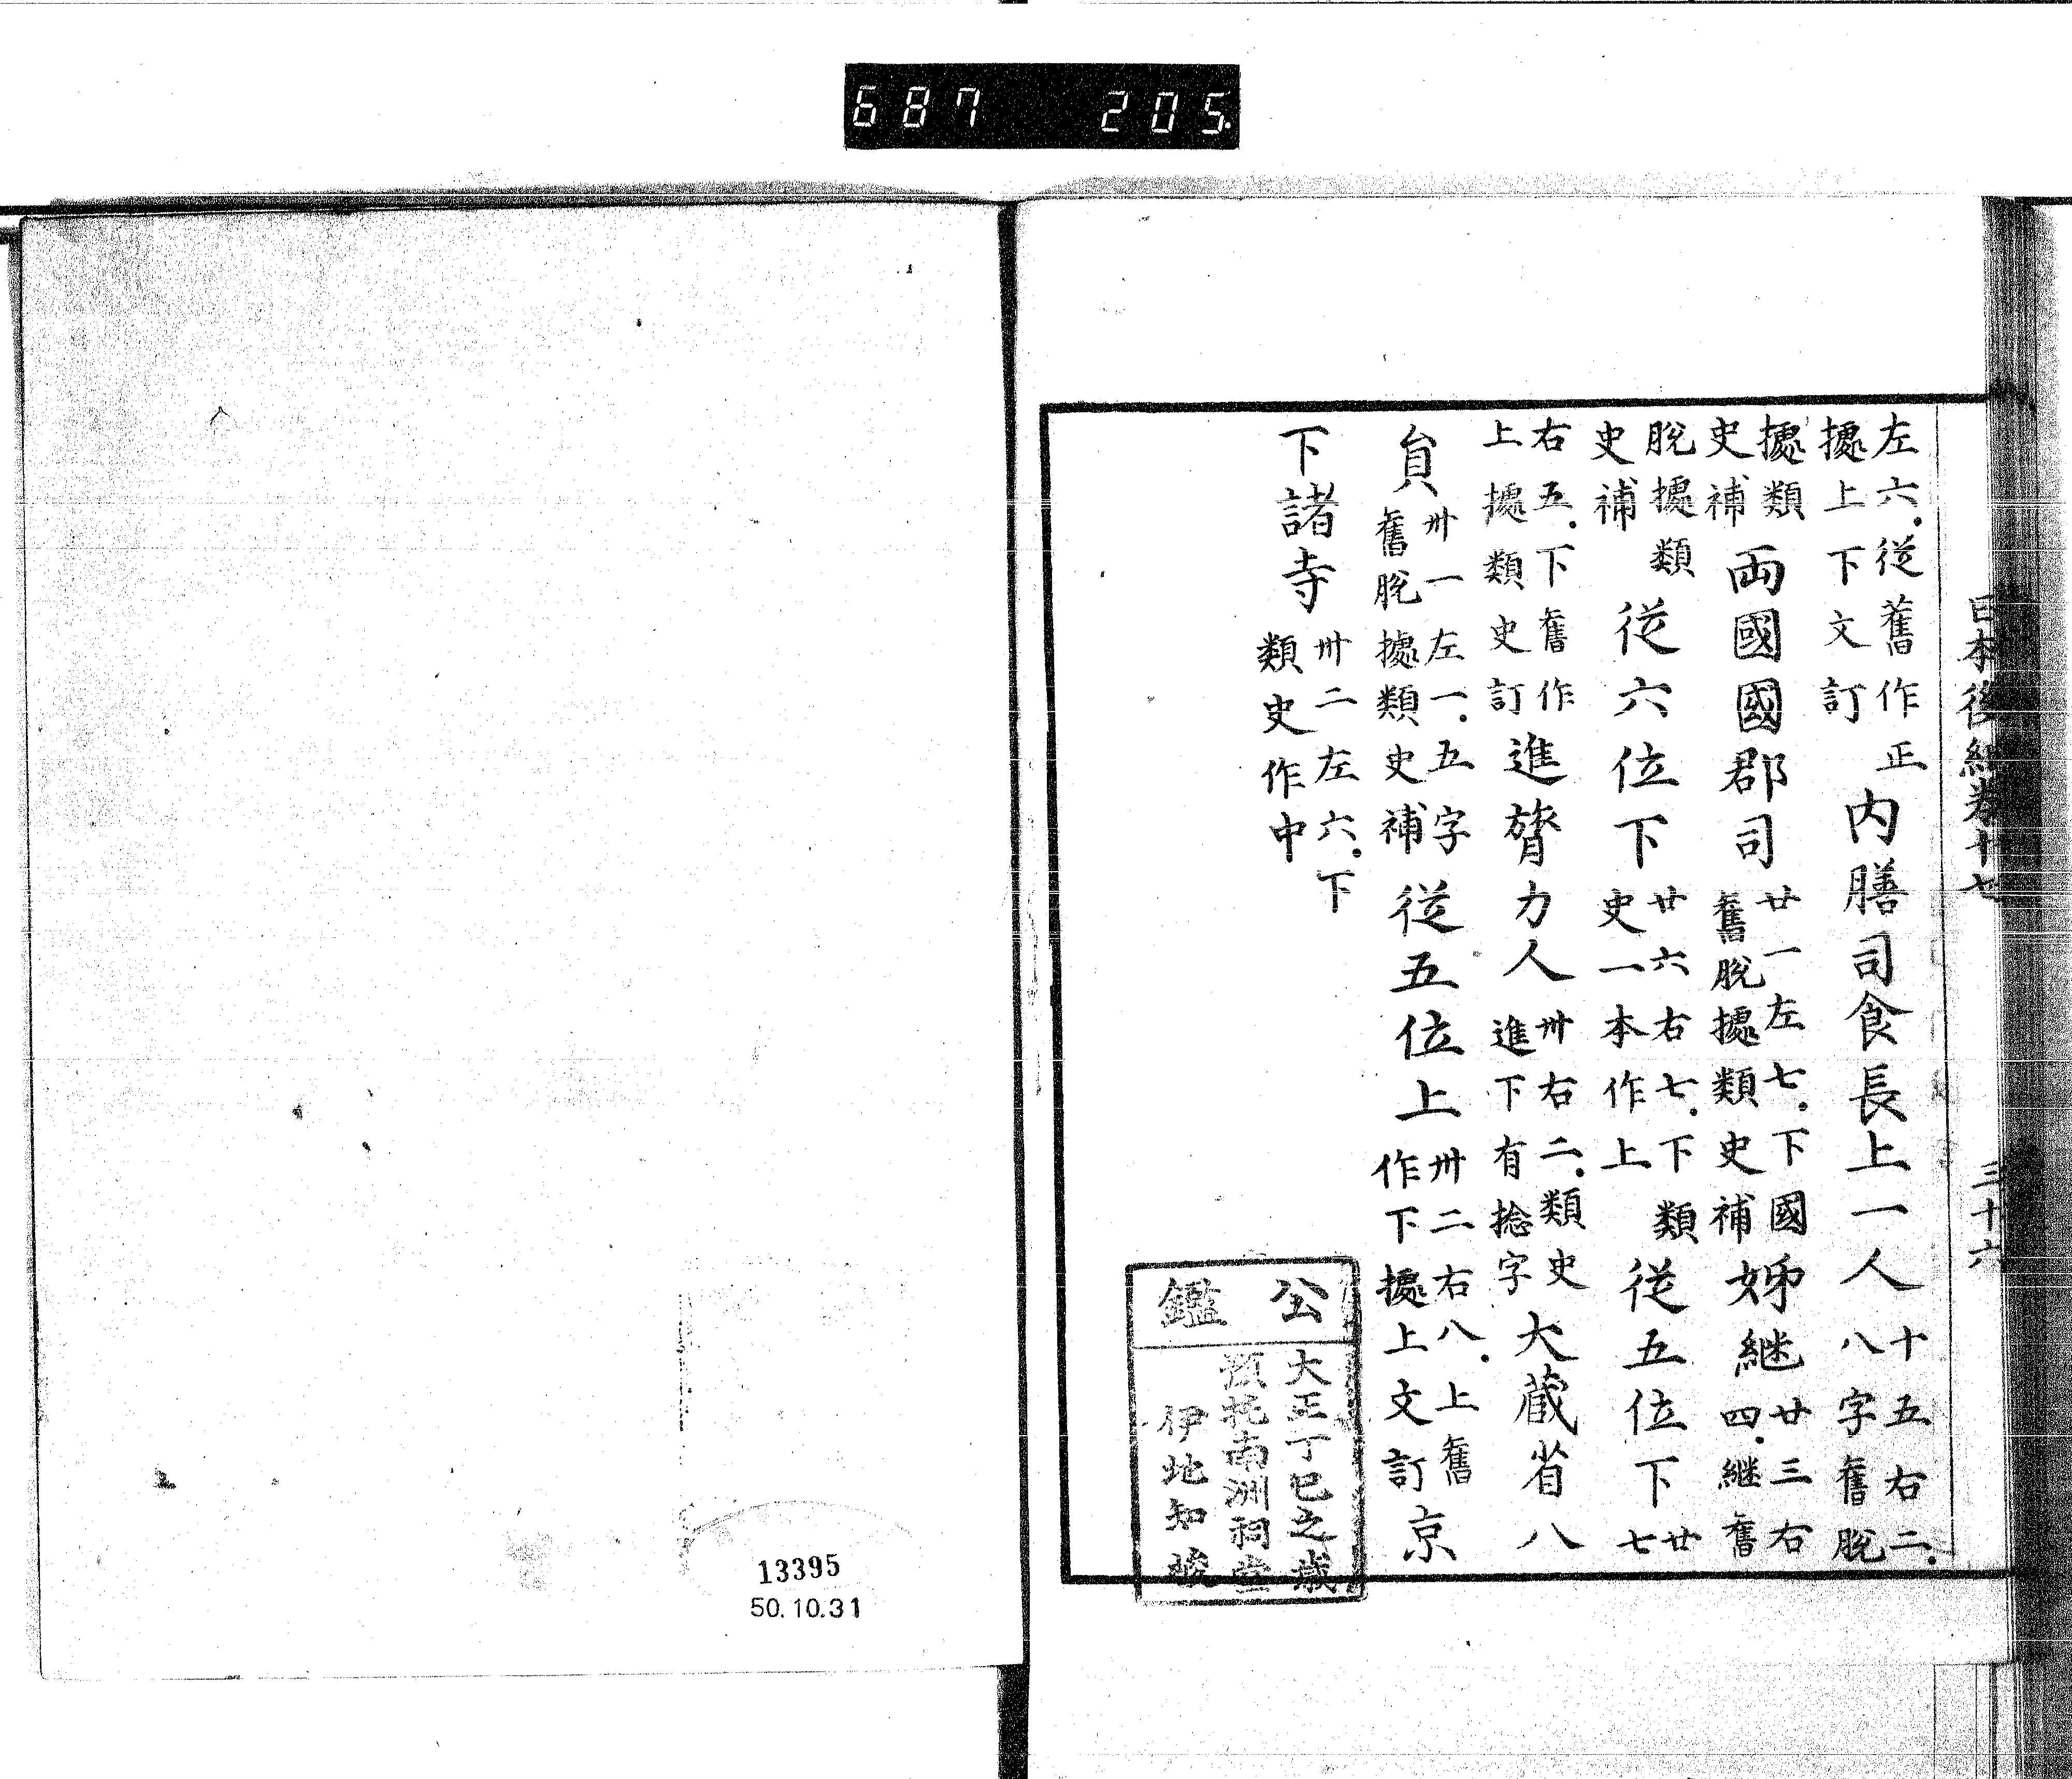 687 205
日本後紀卷十七 三十六
左六.從舊作正據上下文訂 内膳司食長上一人 十五右二.八字舊脫
據類史補 兩國國郡司 廿一左七.下國舊脫據類史補 姊継 廿三右四.継舊
脫據類史補 從六位下 廿六右七.下類史一本作上 從五位下 廿七
右五.下舊作上據類史訂 進膂力人 卅右二.類史進下有捻字 大蔵省八
員 卅一左一.五字舊脫據類史補 從五位上 卅二右八.上舊作下據上文訂 京
下諸寺 卅二左六.下類史作中
公鑑
大正丁巳之歳
預托南洲祠堂
伊地知峻
13395
50.10.31